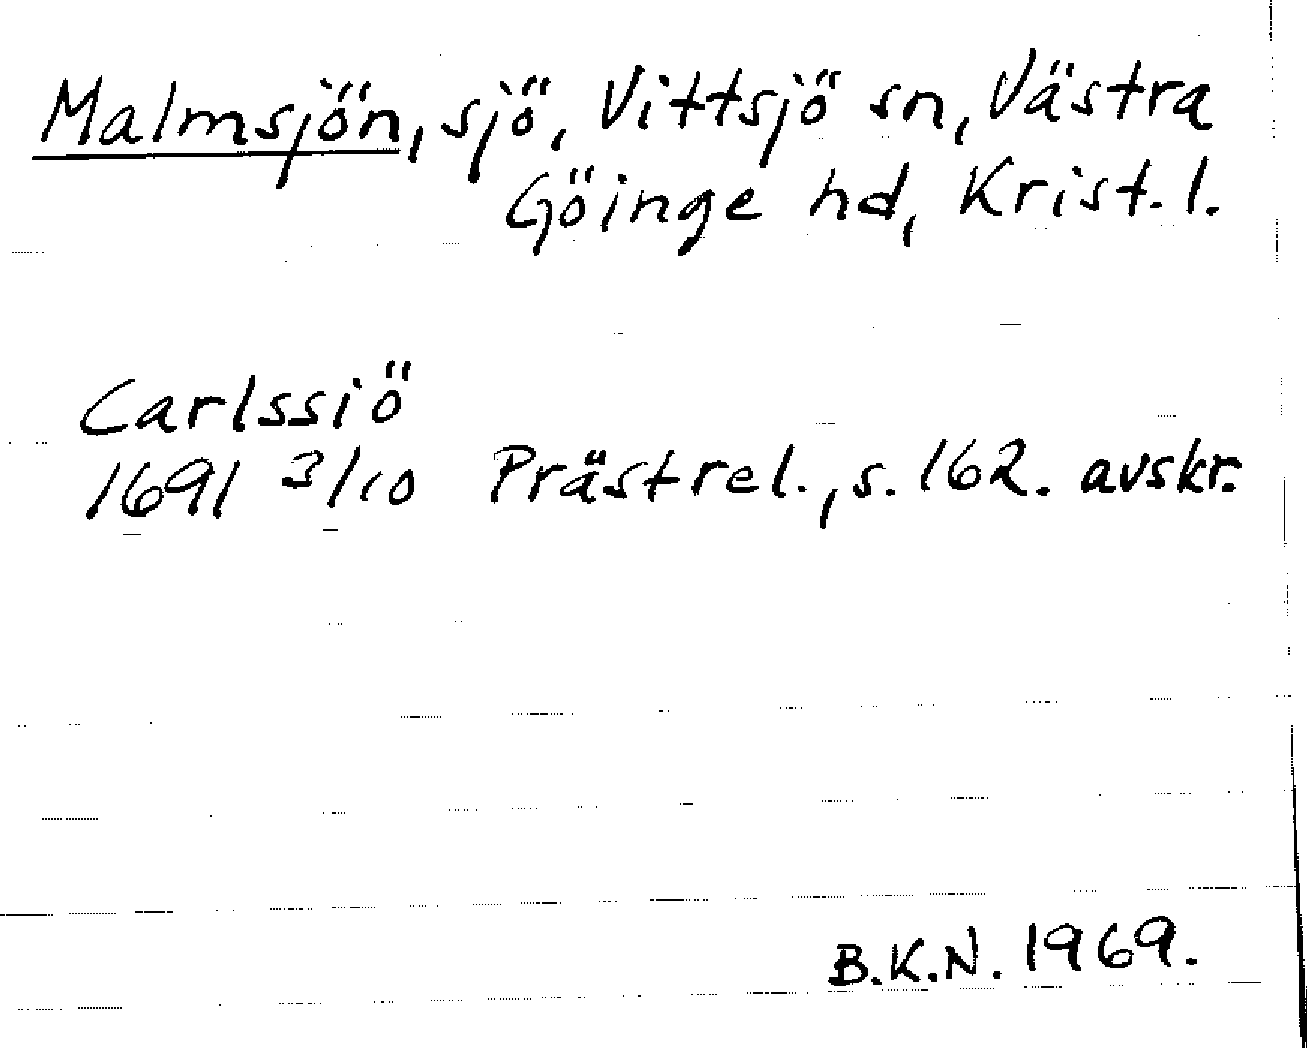 Malmsjön, sjö, Vittsjö sn, Västra
Göinge hd, Krist. l.
Carlssiö
1691 3/10 Prästrel., s. 162. avskr.
B.K.N. 1969.